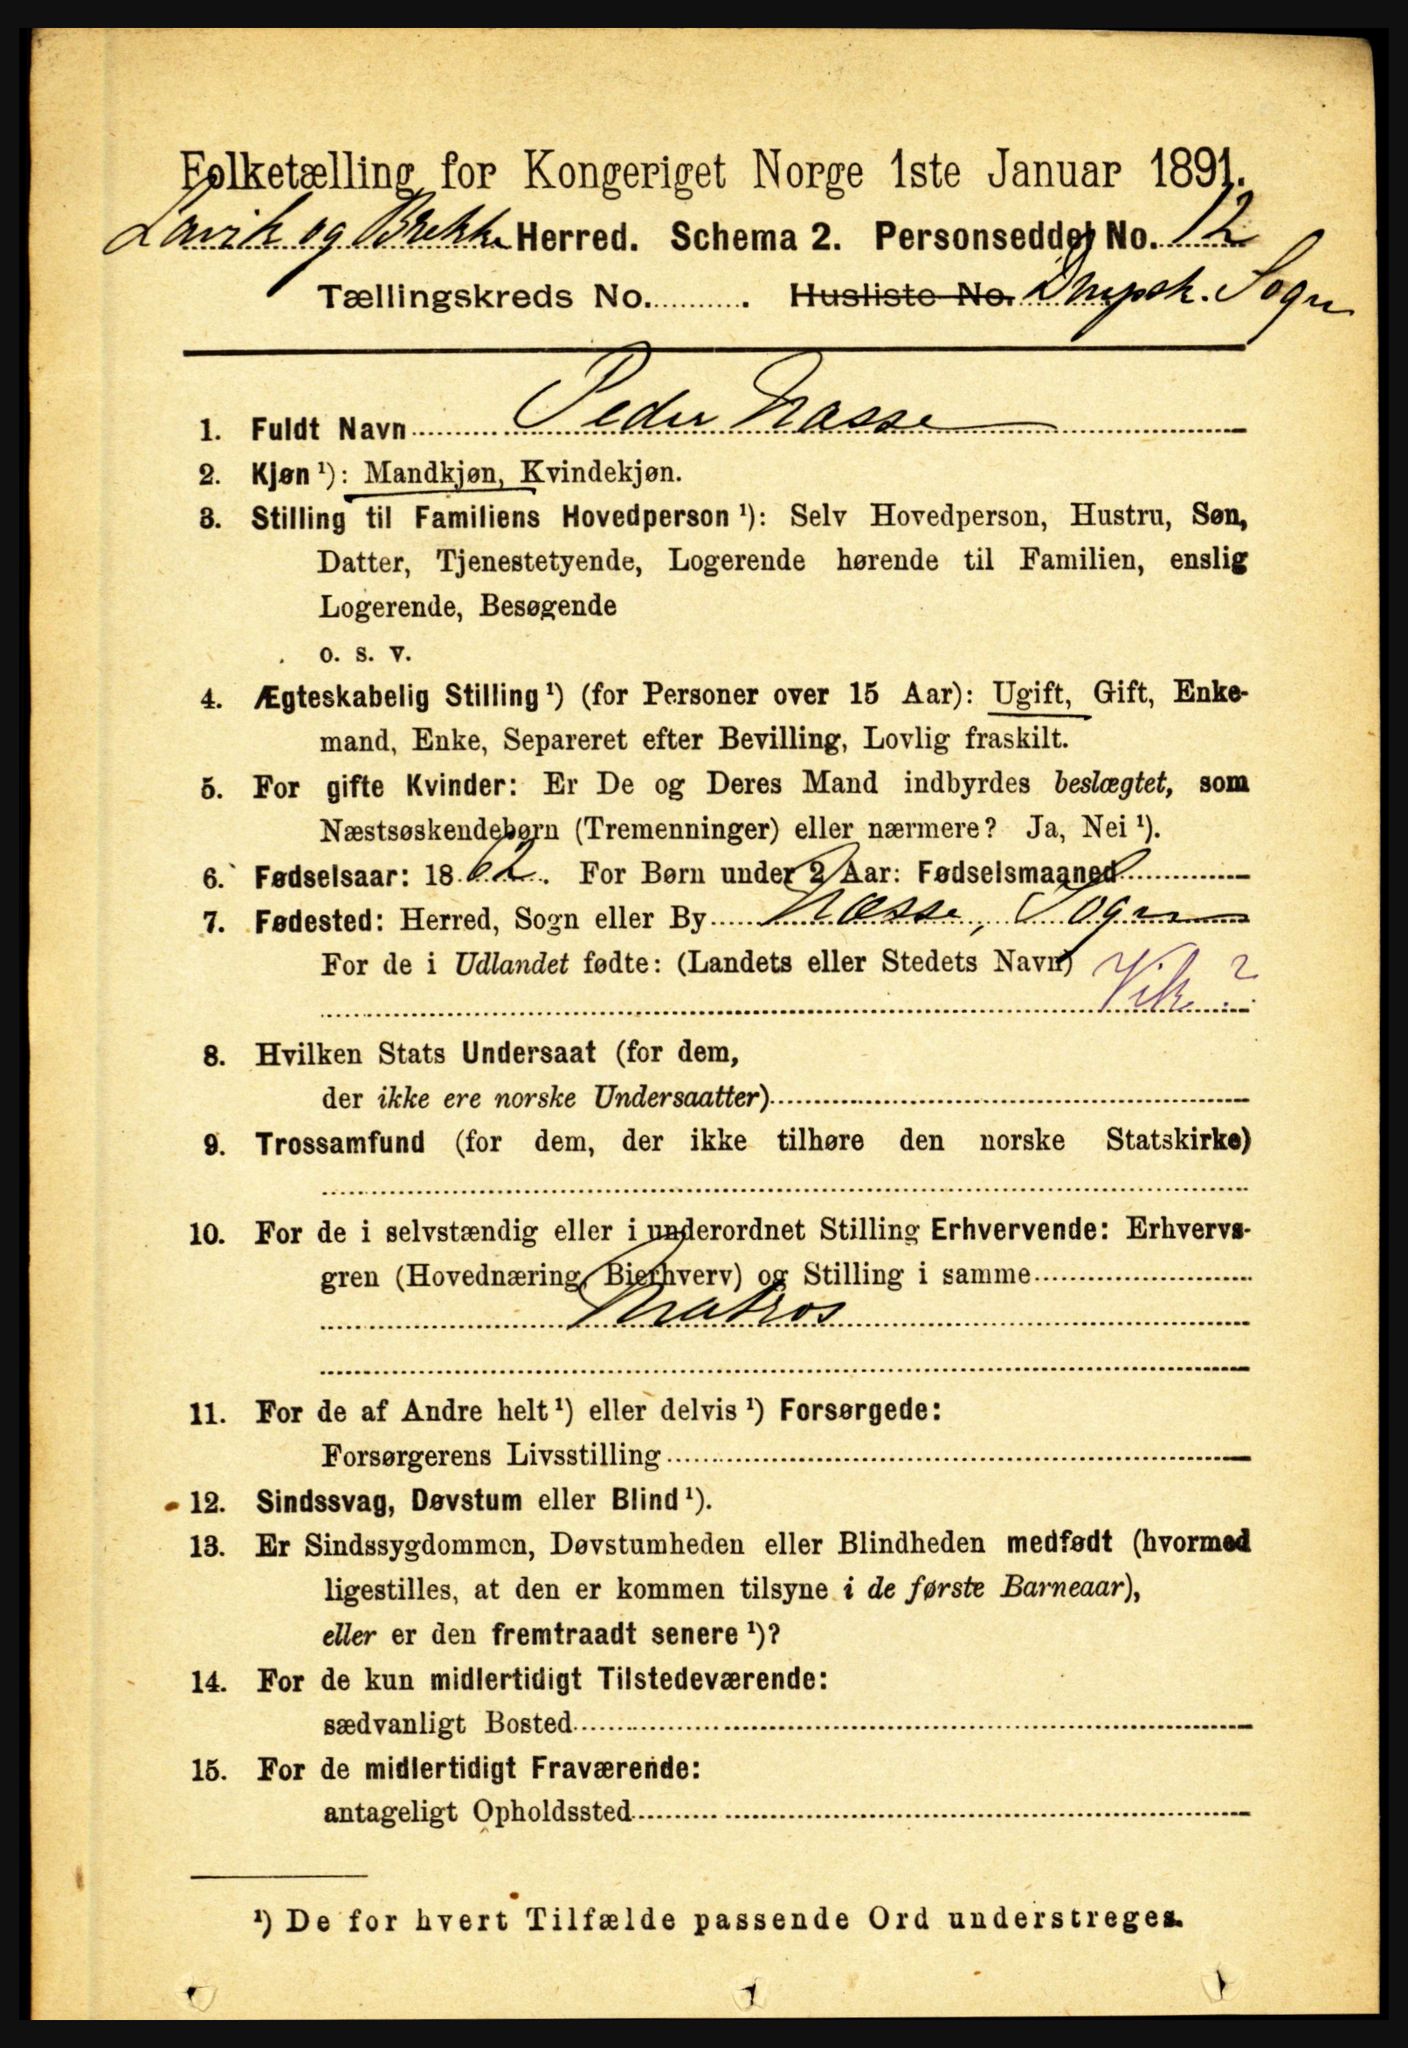 Folketælling for Kongeriget Norge 1ste Januar 1891.
Lavik og Brekke Herred. Schema 2. Personseddel No. 12
Tællingskreds No. . Husliste No. Dmpsk. Sogn
1. Fuldt Navn Peder Næsse
2. Kjøn ¹): Mandkjøn, Kvindekjøn.
3. Stilling til Familiens Hovedperson ¹): Selv Hovedperson, Hustru, Søn,
Datter, Tjenestetyende, Logerende hørende til Familien, enslig
Logerende, Besøgende
o. s. v.
4. Ægteskabelig Stilling ¹) (for Personer over 15 Aar): Ugift, Gift, Enke-
mand, Enke, Separeret efter Bevilling, Lovlig fraskilt.
5. For gifte Kvinder: Er De og Deres Mand indbyrdes beslægtet, som
Næstsøskendebørn (Tremenninger) eller nærmere? Ja, Nei ¹).
6. Fødselsaar: 1862. For Børn under 2 Aar: Fødselsmaaned
7. Fødested: Herred, Sogn eller By Næsse, Sogn
For de i Udlandet fødte: (Landets eller Stedets Navn)
Vik ?
8. Hvilken Stats Undersaat (for dem,
der ikke ere norske Undersaatter)
9. Trossamfund (for dem, der ikke tilhøre den norske Statskirke)
10. For de i selvstændig eller i underordnet Stilling Erhvervende: Erhvervs-
gren (Hovednæring, Bierhverv) og Stilling i samme
Matros
11. For de af Andre helt ¹) eller delvis ¹) Forsørgede:
Forsørgerens Livsstilling
12. Sindssvag, Døvstum eller Blind ¹).
13. Er Sindssygdommen, Døvstumheden eller Blindheden medfødt (hvormed
ligestilles, at den er kommen tilsyne i de første Barneaar),
eller er den fremtraadt senere ¹)?
14. For de kun midlertidigt Tilstedeværende:
sædvanligt Bosted
15. For de midlertidigt Fraværende:
antageligt Opholdssted
¹) De for hvert Tilfælde passende Ord understreges.